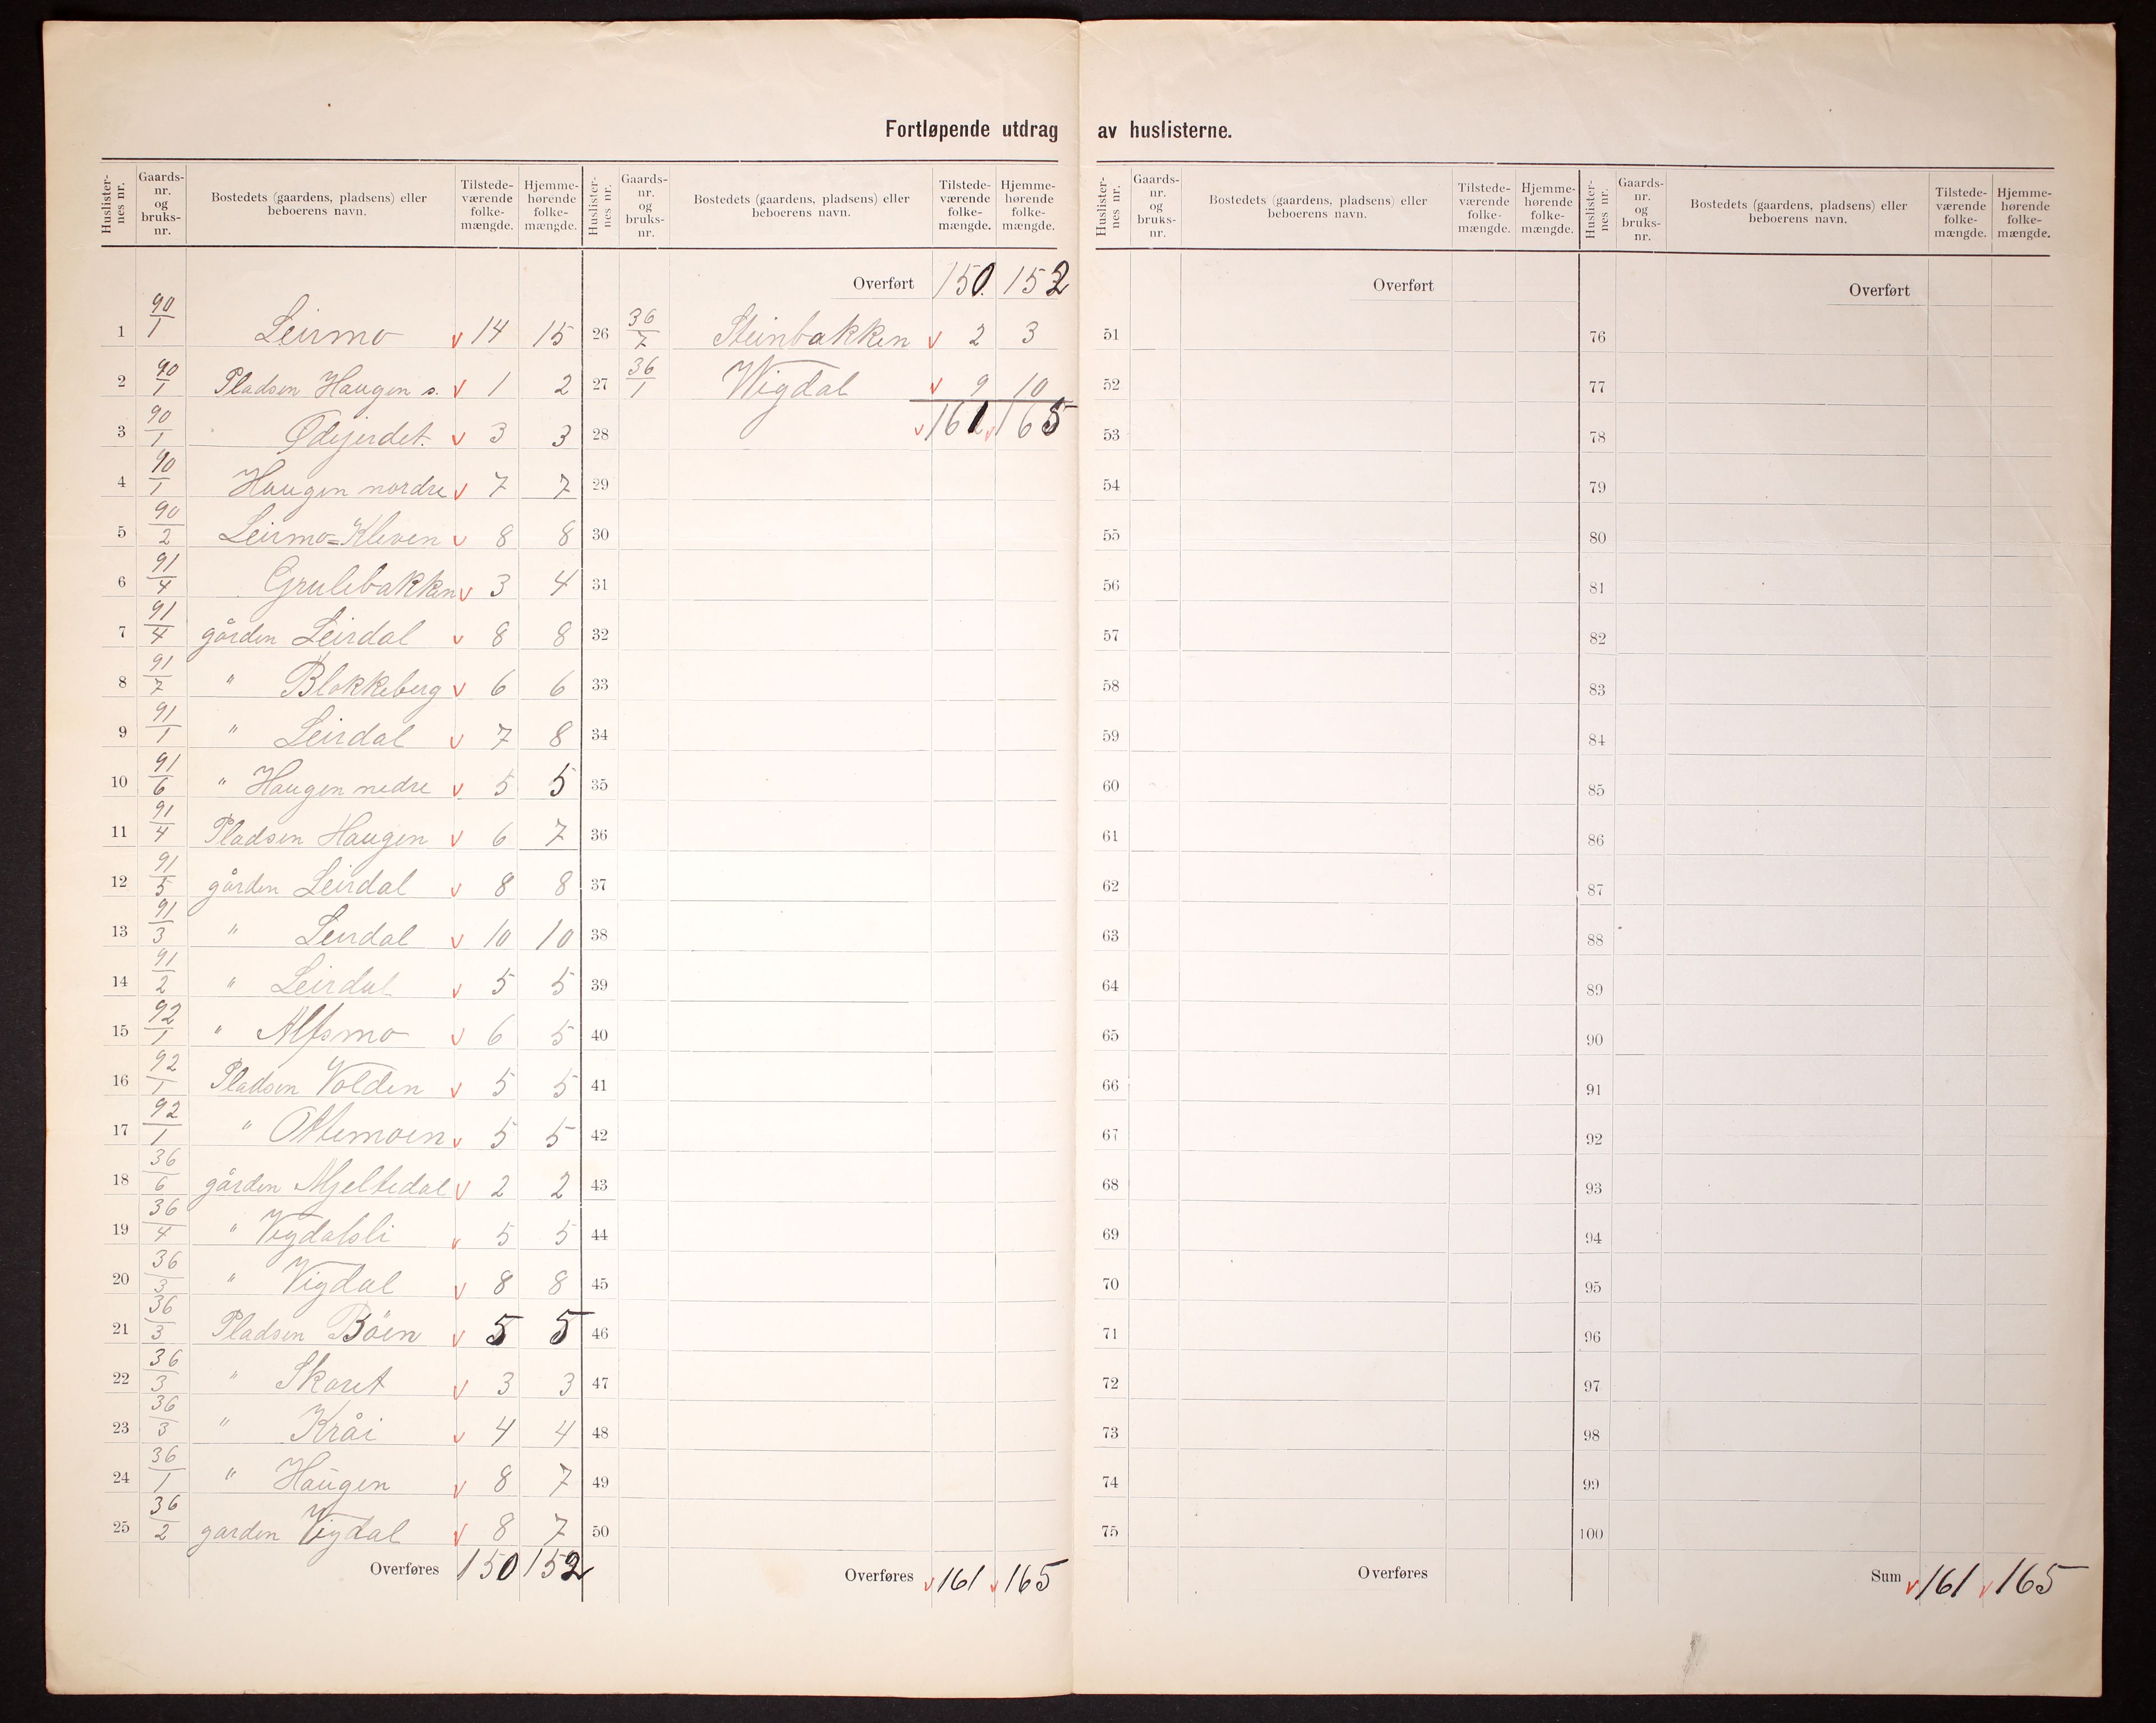 Fortløpende utdrag av huslisterne.
Huslister-nes nr. | Gaards-nr. og bruks-nr. | Bostedets (gaardens, pladsens) eller beboerens navn. | Tilstede-værende folke-mængde. | Hjemme-hørende folke-mængde.
1 90/1 Leirmo v 14 15
2 90/1 Pladsen Haugen s. v 1 2
3 90/1 Ødejerdet. v 3 3
4 90/1 Haugen nordre v 7 7
5 90/2 Leirmo=Kleven v 8 8
6 91/4 Grulebakken v 3 4
7 91/4 gården Leirdal v 8 8
8 91/7 " Blokkeberg v 6 6
9 91/1 " Leirdal v 7 8
10 91/6 " Haugen nedre v 5 5
11 91/4 Pladsen Haugen v 6 7
12 91/5 gården Leirdal v 8 8
13 91/3 " Leirdal v 10 10
14 91/2 " Leirdal v 5 5
15 92/1 " Alfsmo v 6 5
16 92/1 Pladsen Volden v 5 5
17 92/1 " Ottemoen v 5 5
18 36/6 gården Mjeltedal v 2 2
19 36/4 " Vigdalsli v 5 5
20 36/3 " Vigdal v 8 8
21 36/3 Pladsen Böen v 5 5
22 36/3 " Skaret v 3 3
23 36/3 " Kråi v 4 4
24 36/1 " Haugen v 8 7
25 36/2 garden Vigdal v 8 7
Overføres 150 152
Huslister-nes nr. | Gaards-nr. og bruks-nr. | Bostedets (gaardens, pladsens) eller beboerens navn. | Tilstede-værende folke-mængde. | Hjemme-hørende folke-mængde.
Overført 150. 152
26 36/7 Steinbakken v 2 3
27 36/1 Wigdal v 9 10
28 v 161 v 165
29
30
31
32
33
34
35
36
37
38
39
40
41
42
43
44
45
46
47
48
49
50
Overføres v 161 v 165
Huslister-nes nr. | Gaards-nr. og bruks-nr. | Bostedets (gaardens, pladsens) eller beboerens navn. | Tilstede-værende folke-mængde. | Hjemme-hørende folke-mængde.
Overført
51
52
53
54
55
56
57
58
59
60
61
62
63
64
65
66
67
68
69
70
71
72
73
74
75
Overføres
Huslister-nes nr. | Gaards-nr. og bruks-nr. | Bostedets (gaardens, pladsens) eller beboerens navn. | Tilstede-værende folke-mængde. | Hjemme-hørende folke-mængde.
Overført
76
77
78
79
80
81
82
83
84
85
86
87
88
89
90
91
92
93
94
95
96
97
98
99
100
Sum v 161 v 165